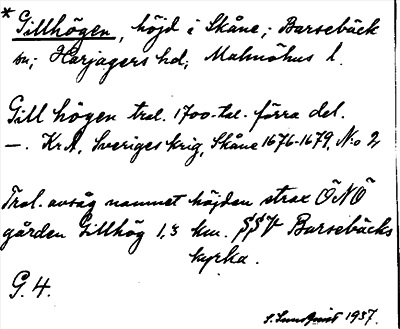 * Gillhögen, höjd i Skåne; Barsebäck
sn; Harjagers hd; Malmöhus l.
Gill högen trol. 1700-tal. förra del.
–. KrA, Sveriges krig, Skåne 1676-1679, N:o 2
Trol. avsåg namnet höjden strax ÖNÖ
gården Gillhög 1,3 km. SSV Barsebäcks
kyrka.
G. 4.
S. Sundquist 1937.